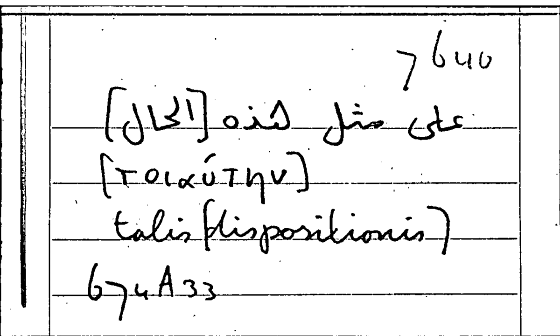 7640
على مثل هذه [الحال]
[τοιαύτην]
talis [dispositionis]
674A33